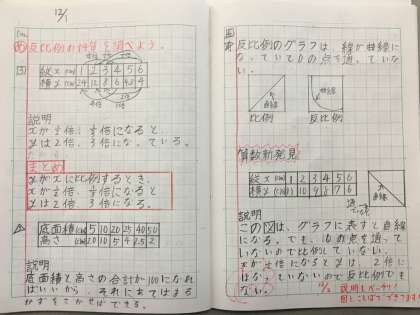 12/1
反比例の性質を調べよう。
縦 x(cm) 1 2 3 4 5 6
横 y(cm) 24 12 8 6 4.8 4
説明
xが½倍、⅓倍になると、
yは2倍、3倍になっている。
まとめ
yがxに比例するとき、
xが½倍、⅓倍になると
yは2倍、3倍になる。
底面積(cm) 5 10 20 25 40 50
高さ(cm) 20 10 5 4 2.5 2
説明
底面積と高さの合計が100になれ
ばいいから、それにあてはまる
かずをさがせばできる。
反比例のグラフは、線が曲線に
なっていて0の点を通っていな
い。
直線
曲線
比例
反比例
算数新発見
縦 x(cm) 1 2 3 4 5 6
横 y(cm) 10 9 8 7 6
直線
説明
この図は、グラフに表すと直線
になる。でも、0の点を通って
いないので比例していない。
xが½倍になるとyは、2倍に
はなっていないので反比例でも
ない。
説明もバッチリ!
図とことばでできてます!